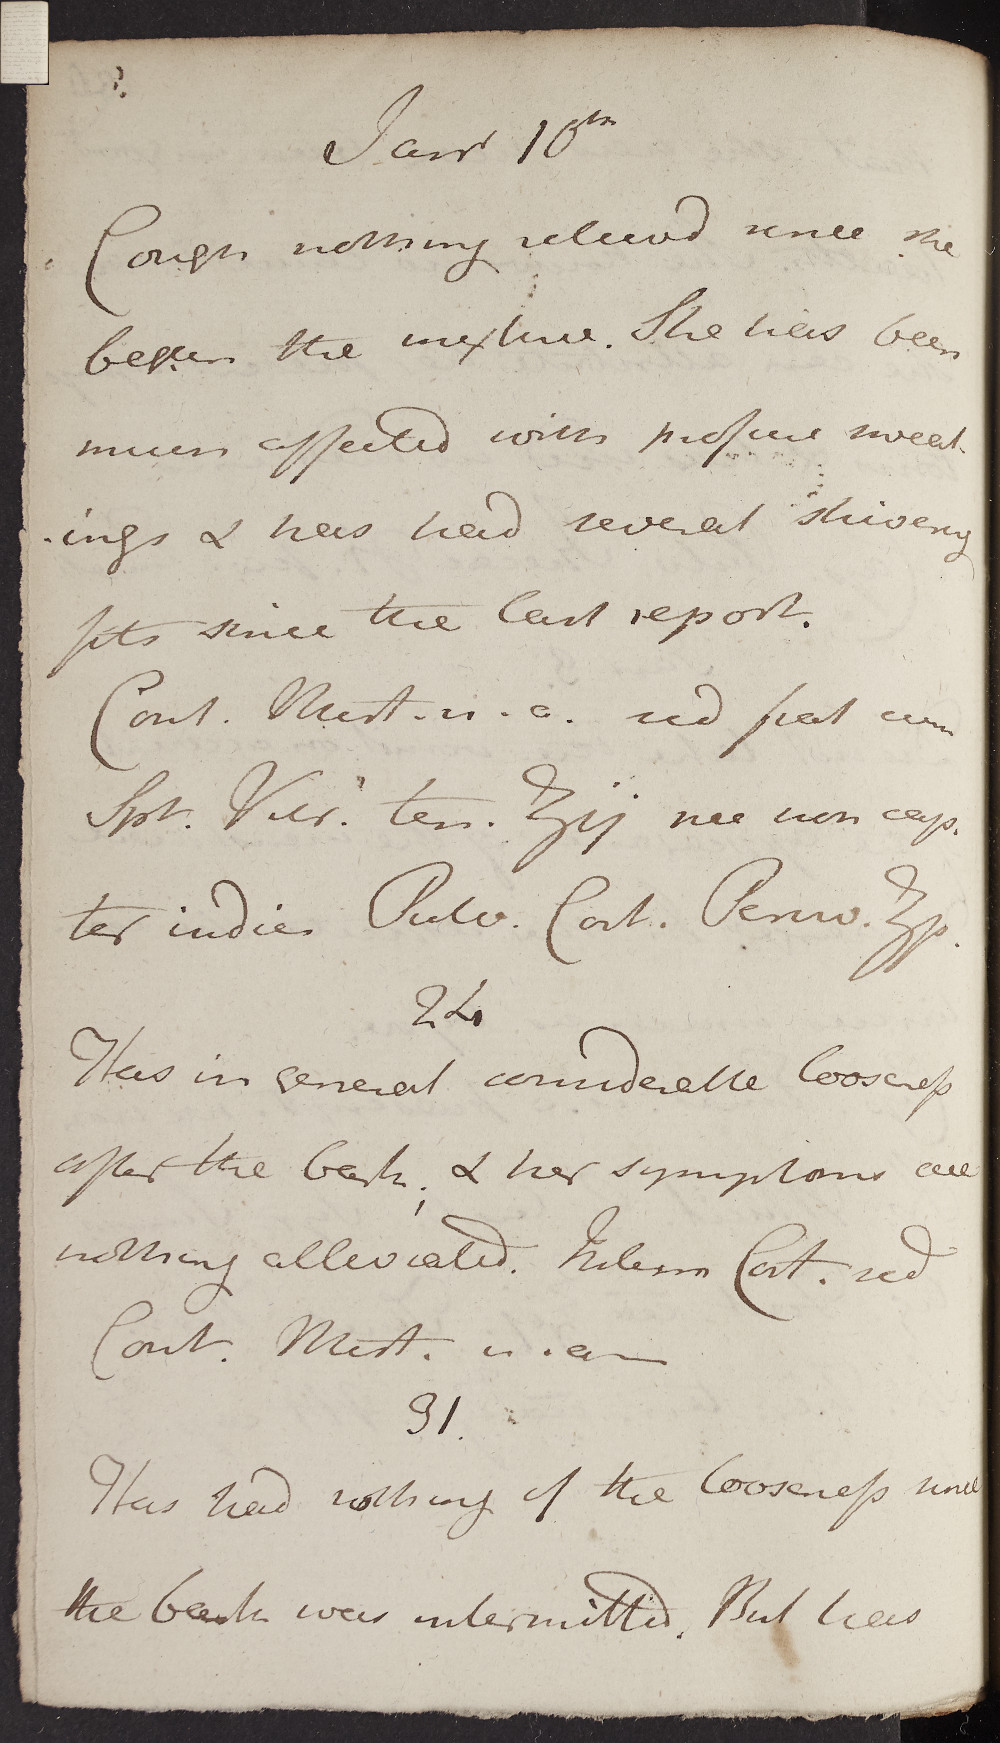 Janr 10th
Cough nothing relieved since she
began the mixture. She has been
much affected with profuse sweat
-ings & has had several shivering
fits since the last report.
Cont. Mist. u. a. sed fiat cum
Spt. Vitr. ten. ʒij nec non cap.
ter indies Pulv. Cort. Peruv. ʒß.
24
Has in general considerable looseness
after the bark, & her symptoms are
nothing alleviated. Interm Cort. sed
Cont. Mist. u. a
31.
Has had nothing of the looseness since
the bark was intermitted. But has